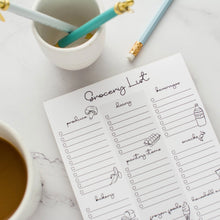 Grocery List
produce
dairy
beverages
pantry items
snacks
bakery
frozen foods
household